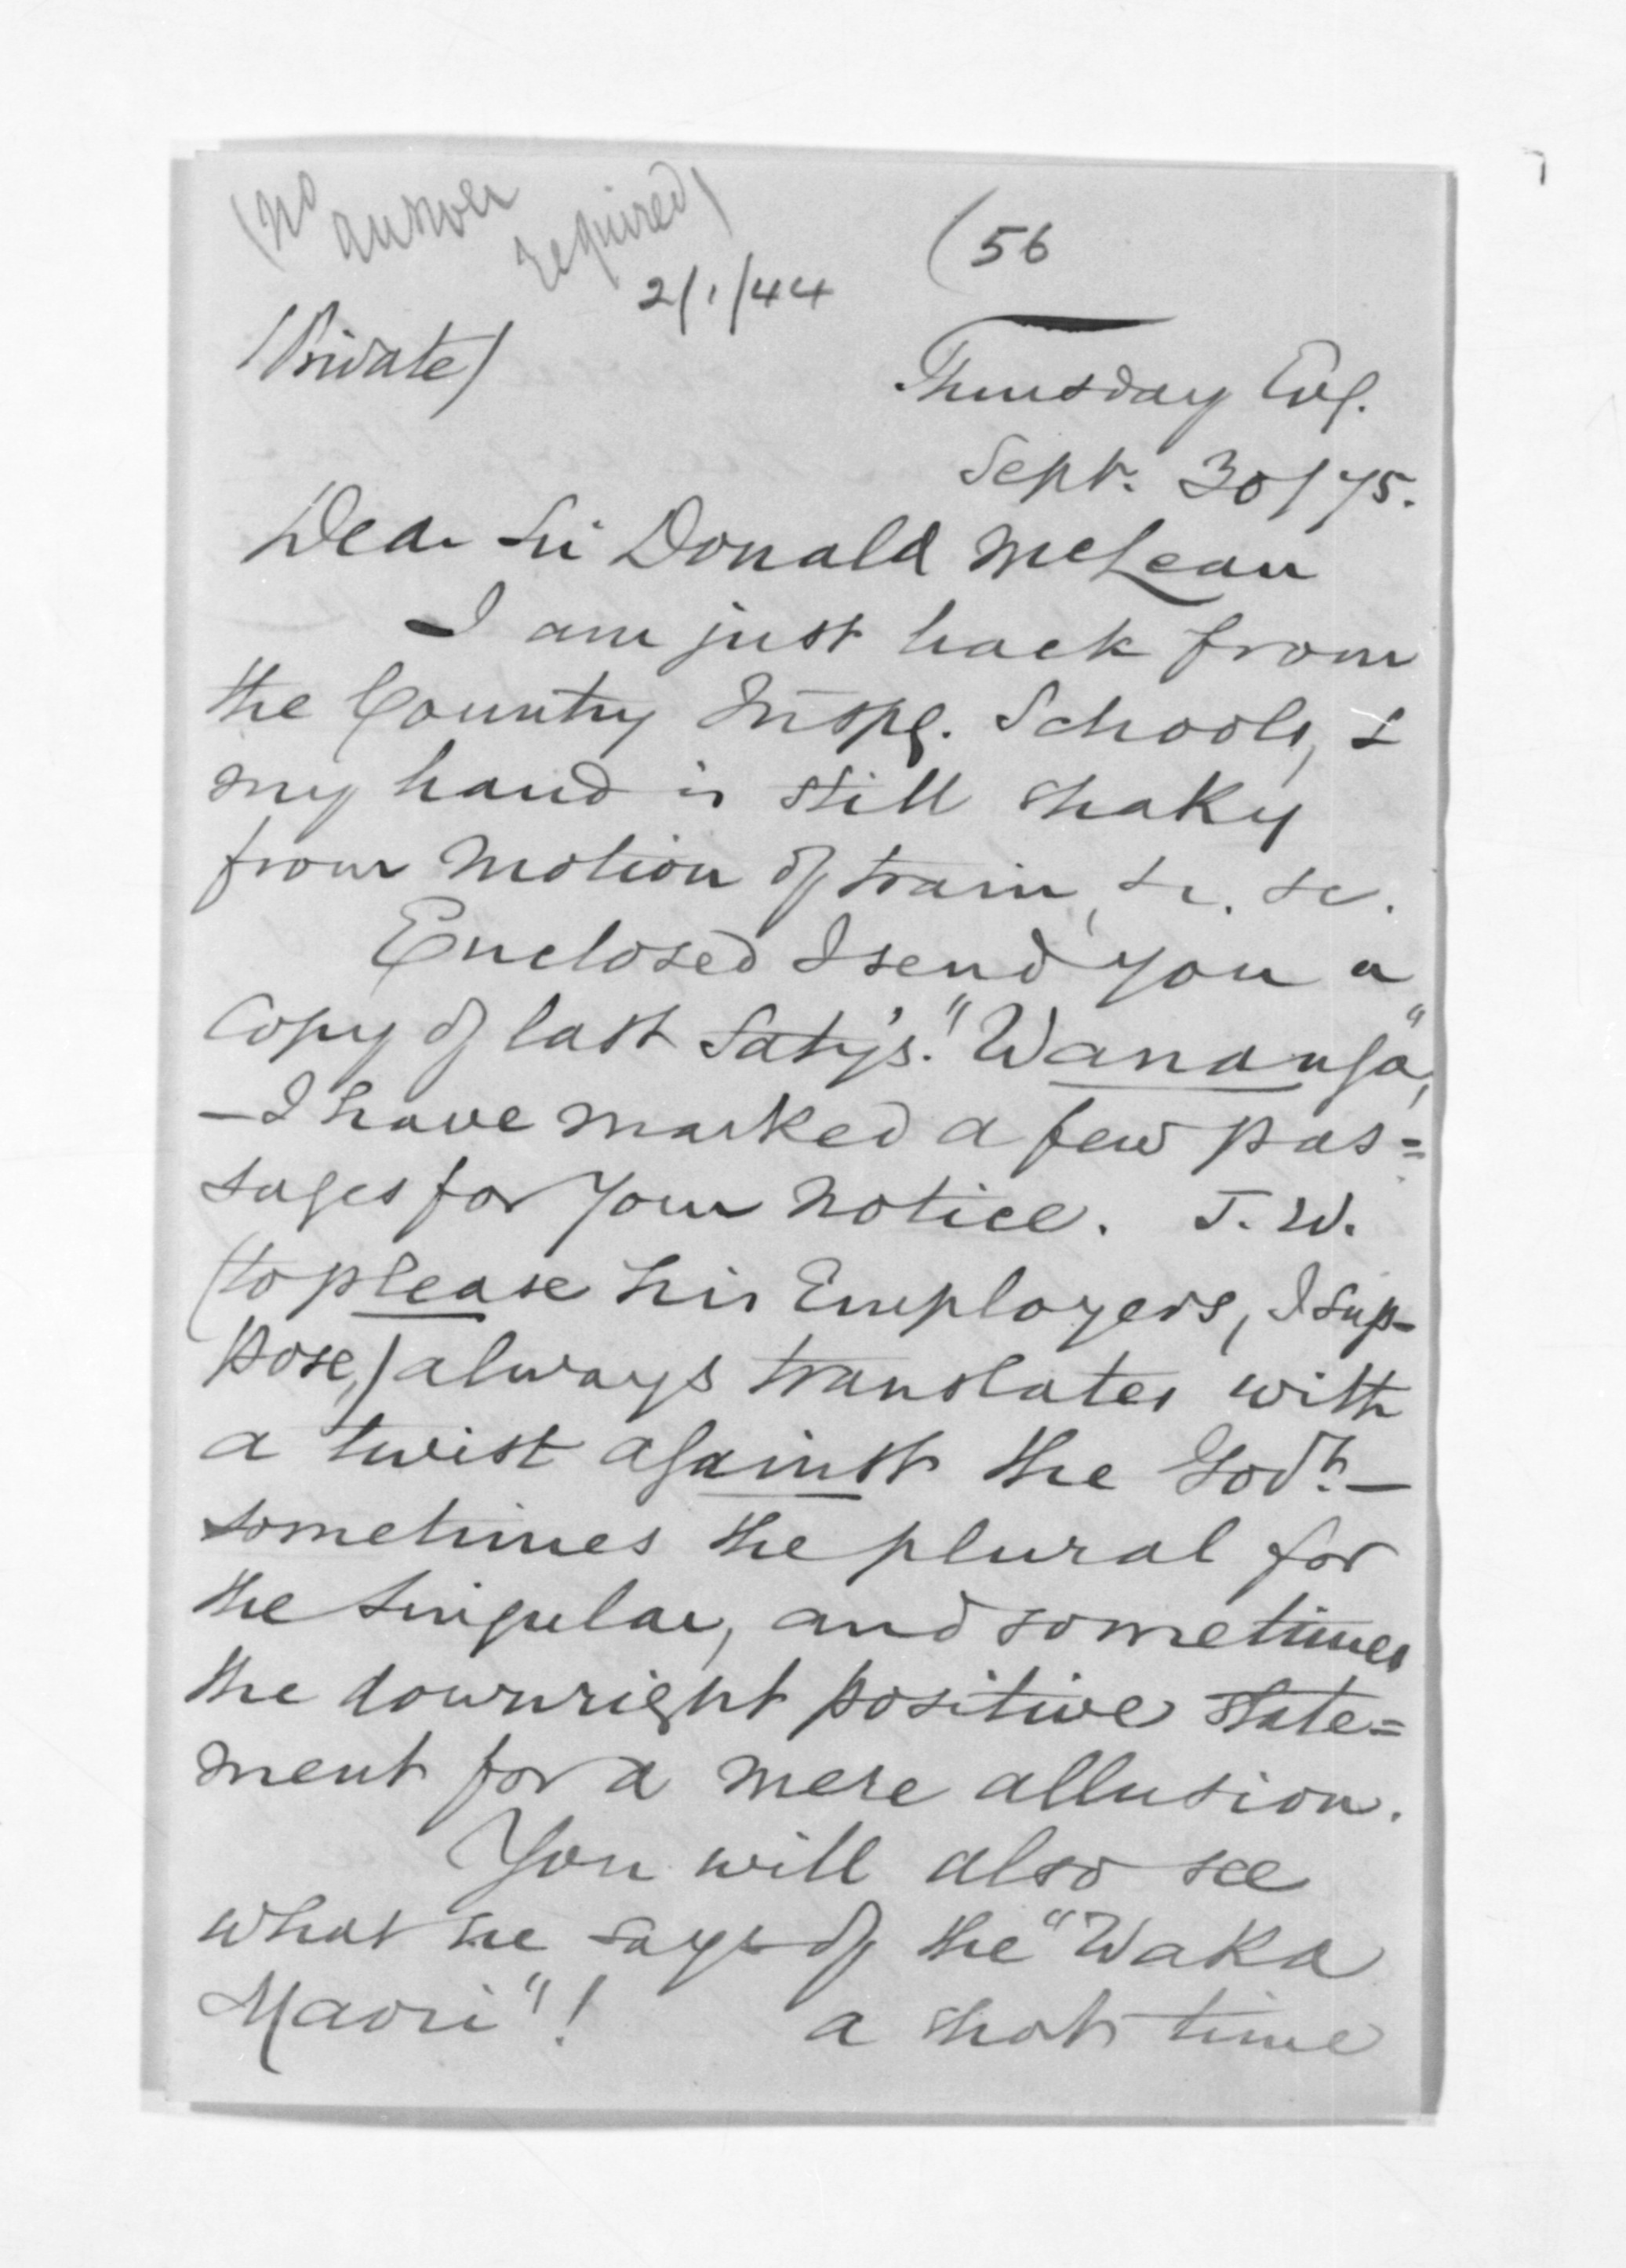 (no answer required)
(56
2/1/44
(Private)
Thursday Evg.
Sept. 30/75.
Dear Sir Donald McLean
I am just back from
the Country Inspg. Schools, &
my hand is still shaky
from motion of train, &c. &c.
Enclosed I send you a
Copy of last Saty's. "Wananga",
—I have marked a few pas=
sages for your notice. J. W.
(to please his Employers, I sup-
pose,) always translates with
a twist against the Govt.—
sometimes the plural for
the singular, and sometimes
the downright positive state=
ment for a mere allusion.
You will also see
what he says of the "Waka
Maori"! a short time